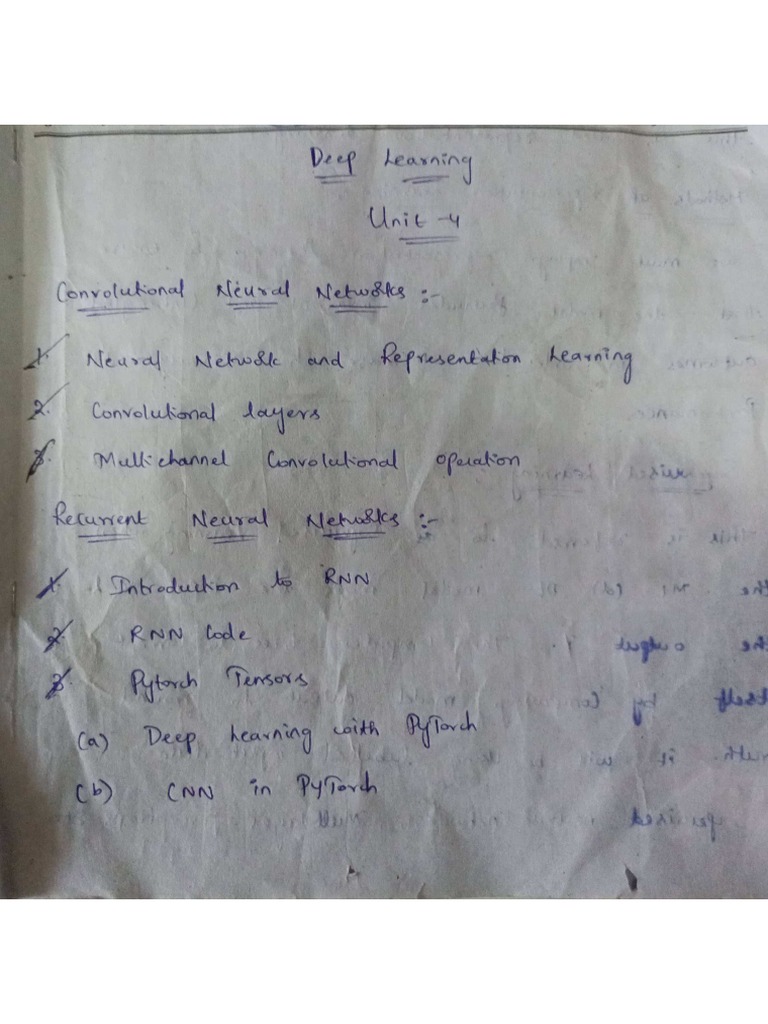 Deep Learning
Unit-4
Convolutional Neural Networks :-
1. Neural Network and Representation Learning
2. Convolutional layers
3. Multichannel Convolutional operation
Recurrent Neural Networks :-
1. Introduction to RNN
2. RNN Code
3. Pytorch Tensors
(a) Deep Learning with PyTorch
(b) CNN in PyTorch